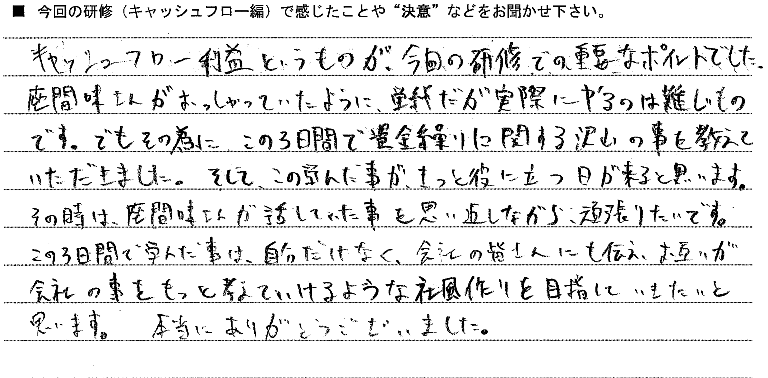 ■ 今回の研修（キャッシュフロー編）で感じたことや“決意”などをお聞かせ下さい。
キャッシュフロー利益というものが、今回の研修での重要なポイントでした。
座間味さんがおっしゃっていたように、単純だが実際にやるのは難しいもの
です。でもその為に この3日間で資金繰りに関する沢山の事を教えて
いただきました。そして、この学んだ事が、きっと役に立つ日が来ると思います。
その時は、座間味さんが話していた事を思い返しながら、頑張りたいです。
この3日間で学んだ事は、自分だけなく、会社の皆さんにも伝え、お互いが
会社の事をもっと考えていけるような社風作りを目指していきたいと
思います。 本当にありがとうございました。